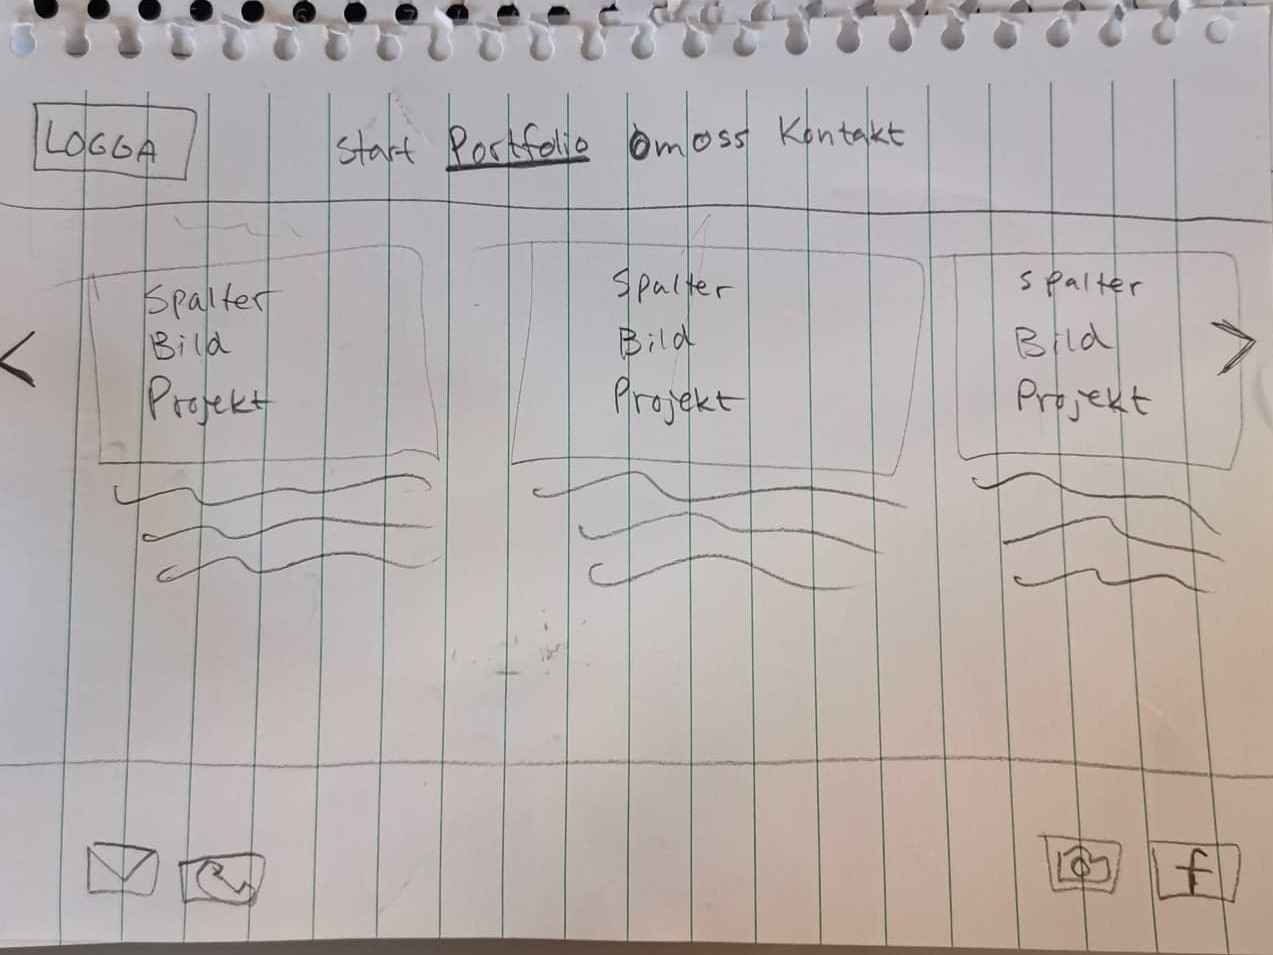 LOGGA
Start Portfolio Om oss Kontakt
Spalter
Bild
Projekt
Spalter
Bild
Projekt
Spalter
Bild
Projekt
<
>
f